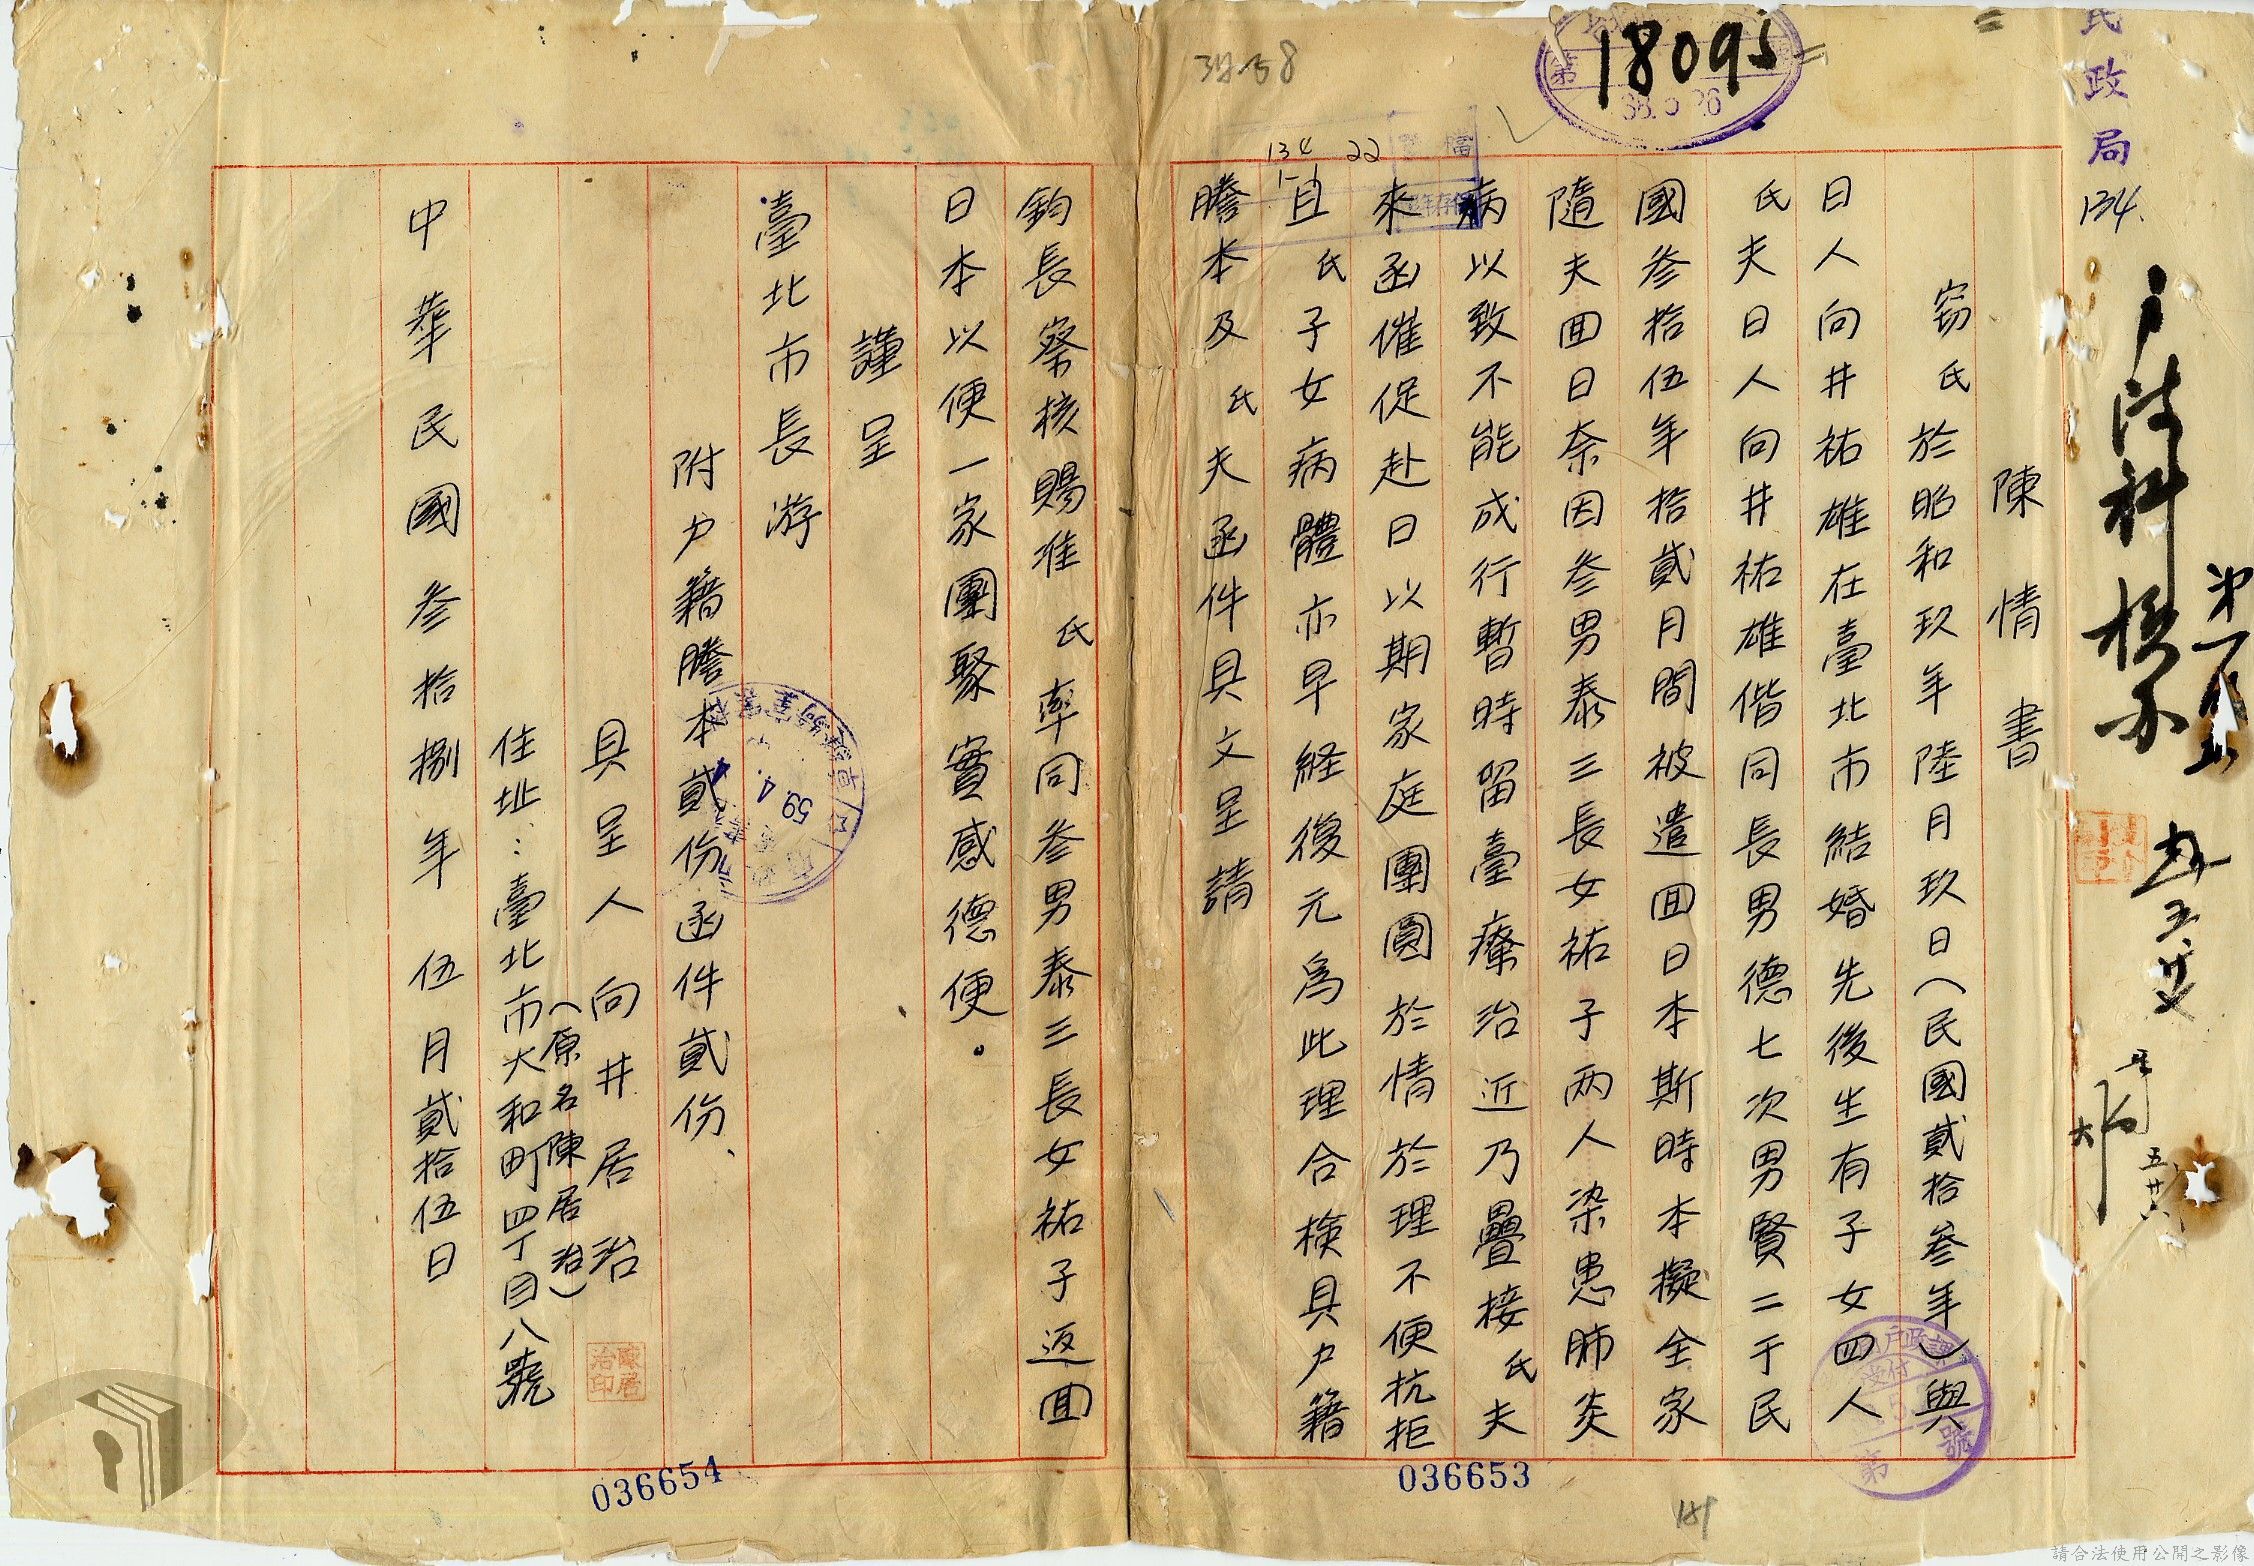 民政局
134.
18095
38.5.26
134
22
陳情書
竊氏於昭和玖年陸月玖日(民國貳拾參年)與
日人向井祐雄在臺北市結婚先後生有子女四人
氏夫日人向井祐雄偕同長男德七次男賢二于民
國參拾伍年拾貳月間被遣囬日本斯時本擬全家
隨夫囬日奈因參男泰三長女祐子兩人染患肺炎
病以致不能成行暫時留臺療治近乃疊接氏夫
來函催促赴日以期家庭團圓於情於理不便抗拒
且氏子女病體亦早経復元為此理合検具户籍
謄本及氏夫函件具文呈請
鈞長察核賜准氏率同參男泰三長女祐子返囬
日本以便一家團聚實感德便。
謹呈
臺北市長游
附户籍謄本貳份函件貳份、
具呈人向井居治
(原名陳居治)
陳居治印
住址:臺北市大和町四丁目八號
中華民國參拾捌年伍月貳拾伍日
59.4
036654
036653
181
請合法使用公開之影像